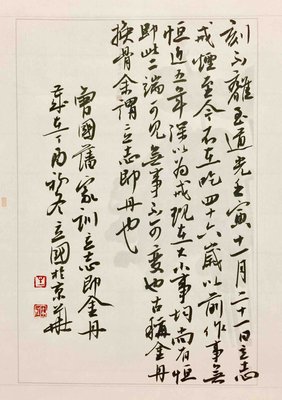 刻不離至道光壬寅十一月二十一日立志
戒煙至今不在吃四十六歲以前作事無
恒近五年深以為戒現在大小事均尚有恒
即此二端可見無事不可變也古稱金丹
換骨余謂立志即丹也
曾國藩家訓立志即金丹
歲在丁酉初冬立國於京華